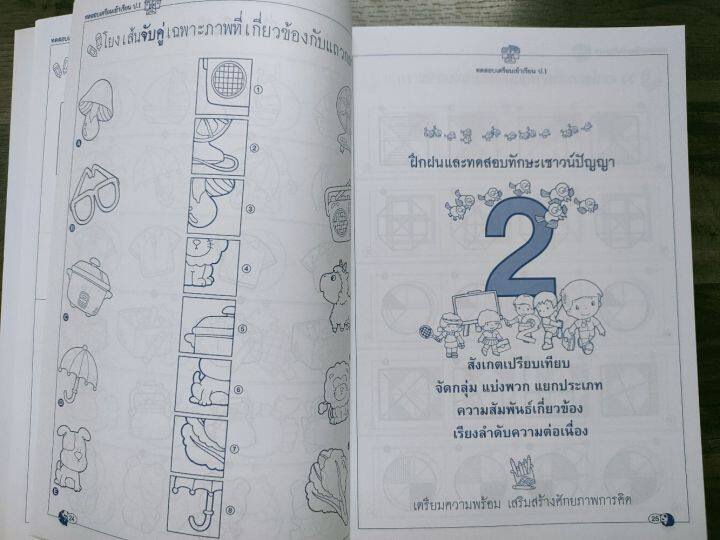 ทดสอบเตรียมเข้าเรียน ป.1
โยงเส้นจับคู่ เฉพาะภาพที่ เกี่ยวข้องกับ
A
C
E
①
②
③
④
⑤
⑥
⑦
⑧
24
ทดสอบเตรียมเข้าเรียน ป.1
ฝึกฝนและทดสอบทักษะเชาวน์ปัญญา
2
สังเกตเปรียบเทียบ
จัดกลุ่ม แบ่งพวก แยกประเภท
ความสัมพันธ์เกี่ยวข้อง
เรียงลำดับความต่อเนื่อง
เตรียมความพร้อม เสริมสร้างศักยภาพการคิด
25